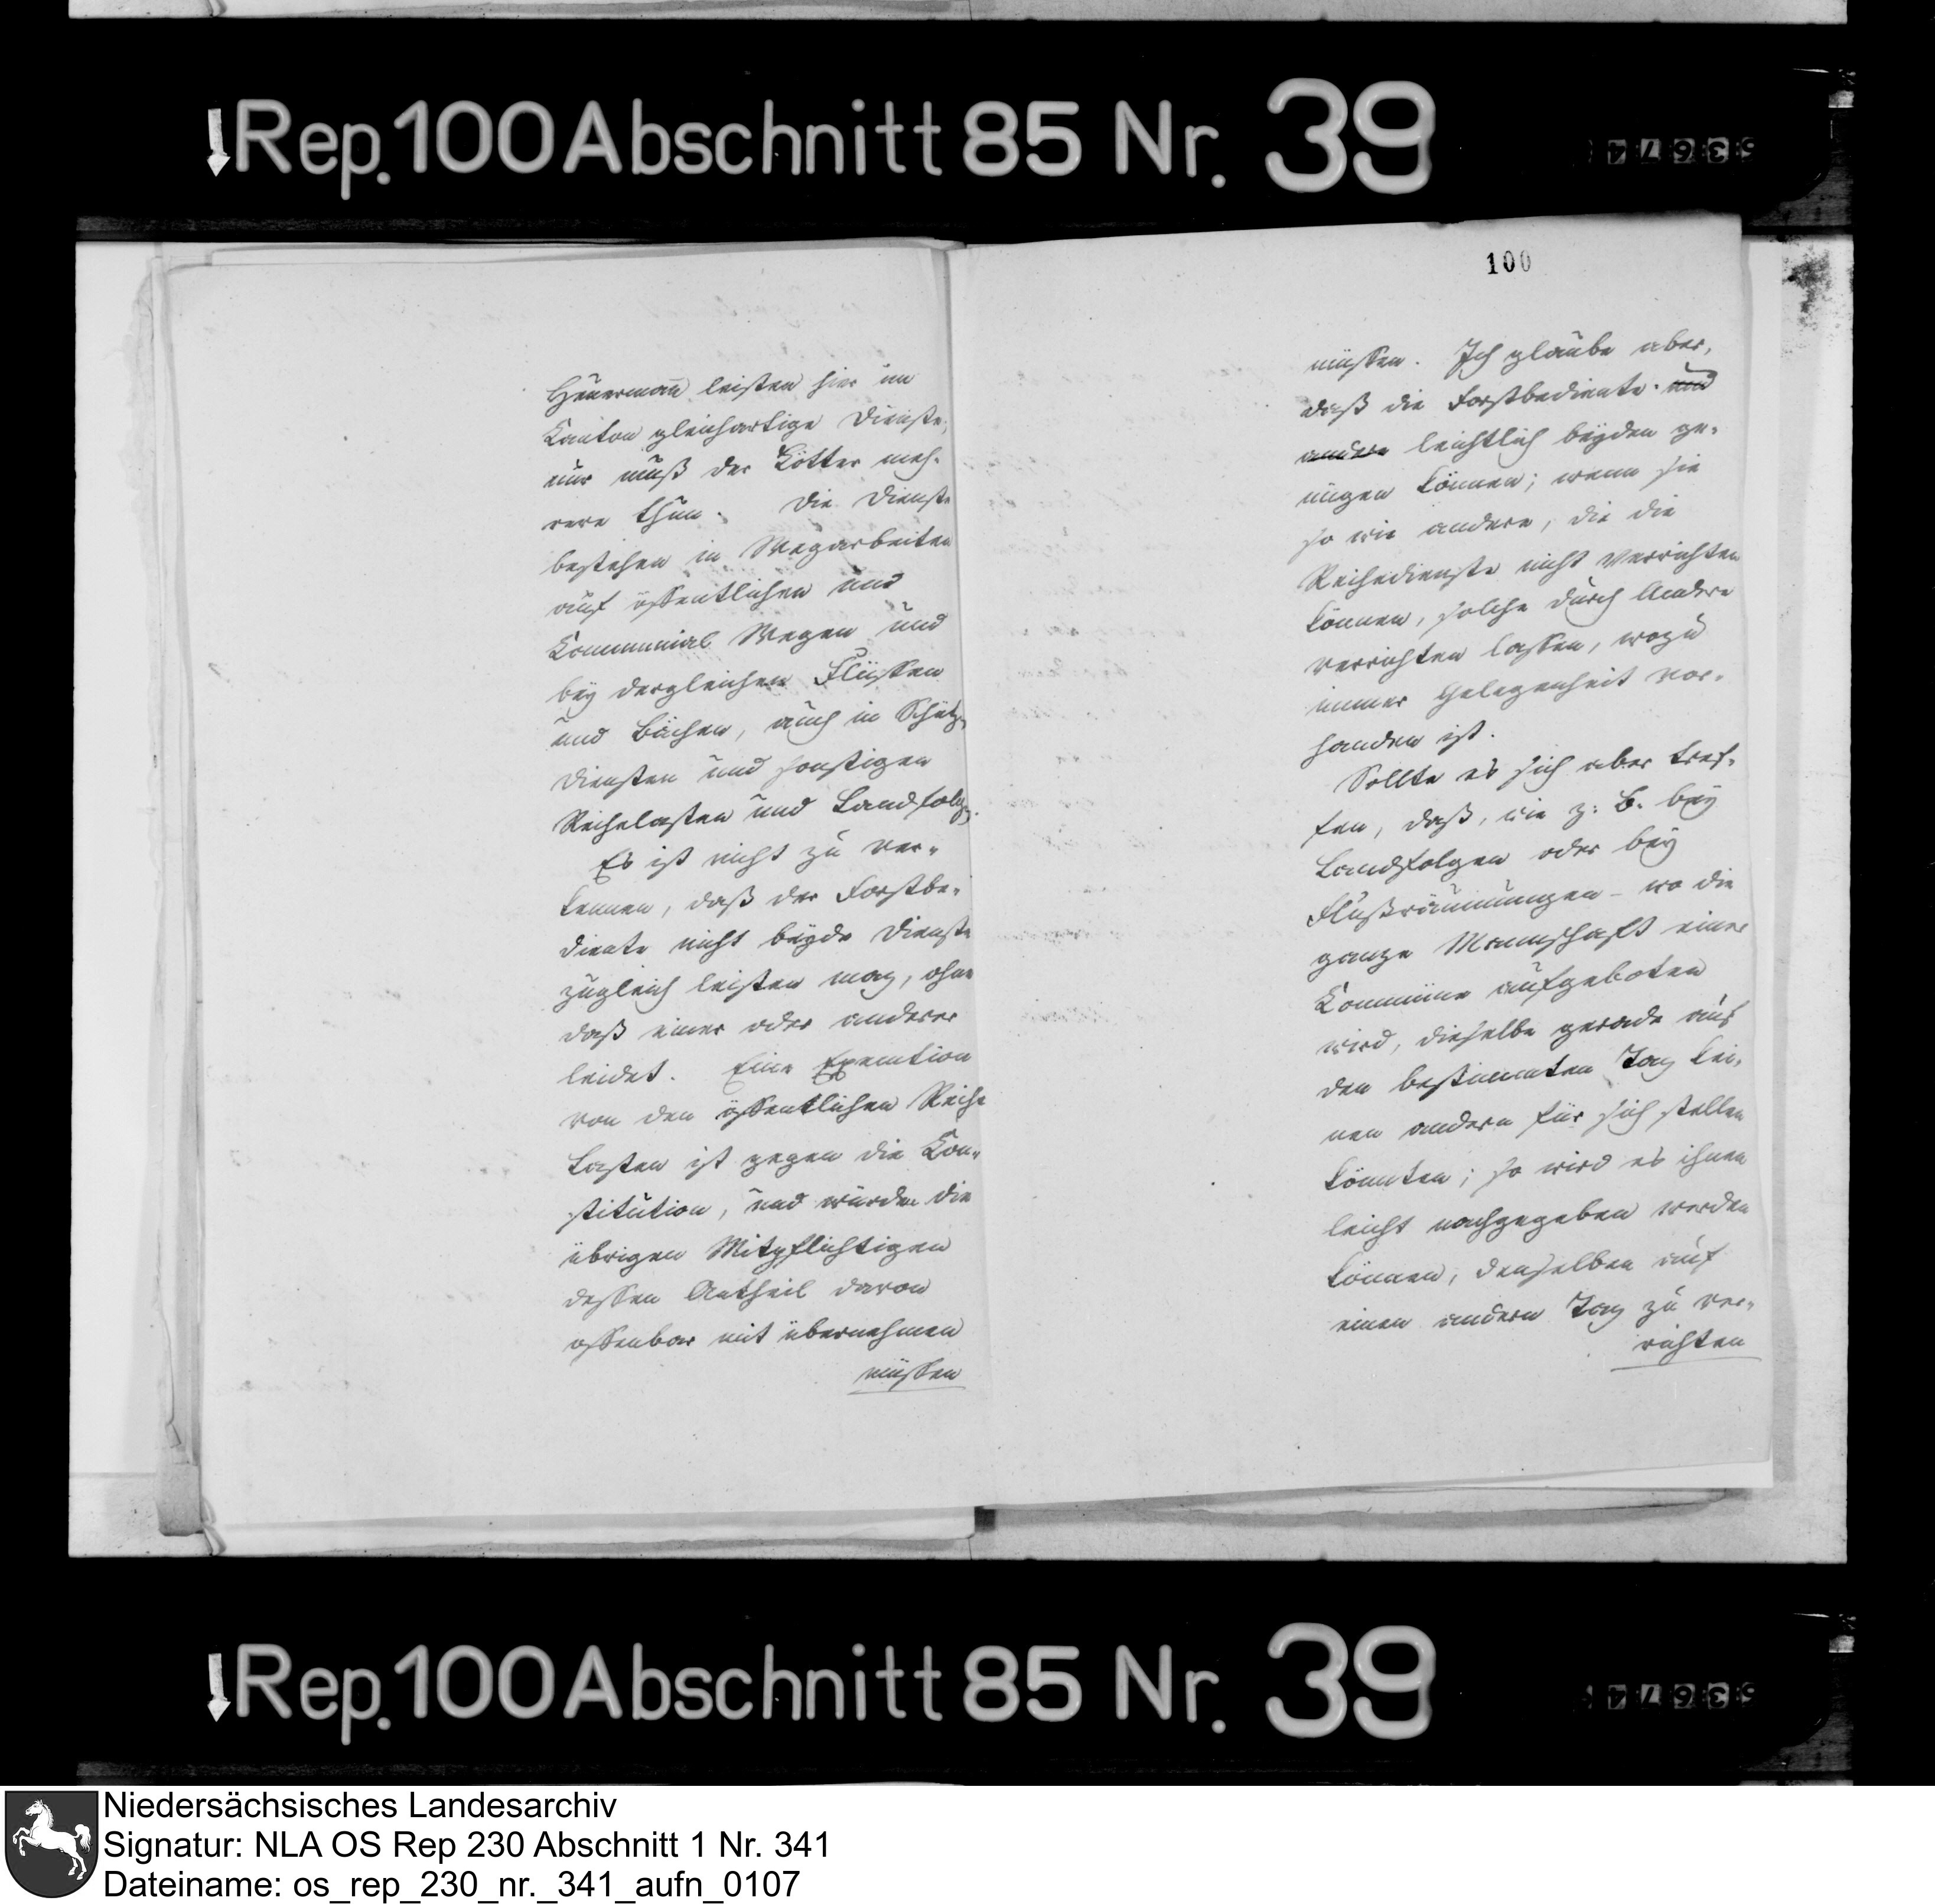 Rep. 100 Abschnitt 85 Nr. 39
Heuermañ leisten hier im
Canton gleichartige Dienste,
nur muß der Kötter meh-
rere thun. Die Dienste
bestehen in Wegarbeiten
auf öffentlichen und
Communial Wegen und
bey dergleichen Flüssen
und Bächen, auch in Schütz-
diensten und sonstigen
Reihelasten und Landfolg.
Es ist nicht zu ver-
kennen, daß der Forstbe-
diente nicht beyde Dienste
zugleich leisten mag, ohne
daß einer oder anderer
leidet. Eine Exemtion
von den öffentlichen Reihe
Lasten ist gegen die Con-
stitution, und würden die
übrigen Mitpflichtigen
dessen Antheil davon
offenbar mit übernehmen
müssen
100
müssen. Ich glaube aber,
daß die Forstbediente und
andere leichtlich beyden ge-
nügen können; wenn sie
so wie andere, die die
Reihedienste nicht verrichten
können, solche durch Andere
verrichten lassen, wozu
immer Gelegenheit vor-
handen ist.
Sollte es sich aber tref-
fen, daß, wie z: B. bey
Landfolgen oder bey
Flußräumungen - wo die
ganze Mannschaft einer
Commüne aufgeboten
wird, dieselbe gerade auf
den bestimmten Tag kei-
nen andern für sich stellen
könnten; so wird es ihnen
leicht nachgegeben werden
können, denselben auf
einen andern Tag zu ver-
richten
Rep. 100 Abschnitt 85 Nr. 39
Niedersächsisches Landesarchiv
Signatur: NLA OS Rep 230 Abschnitt 1 Nr. 341
Dateiname: os_rep_230_nr._341_aufn_0107